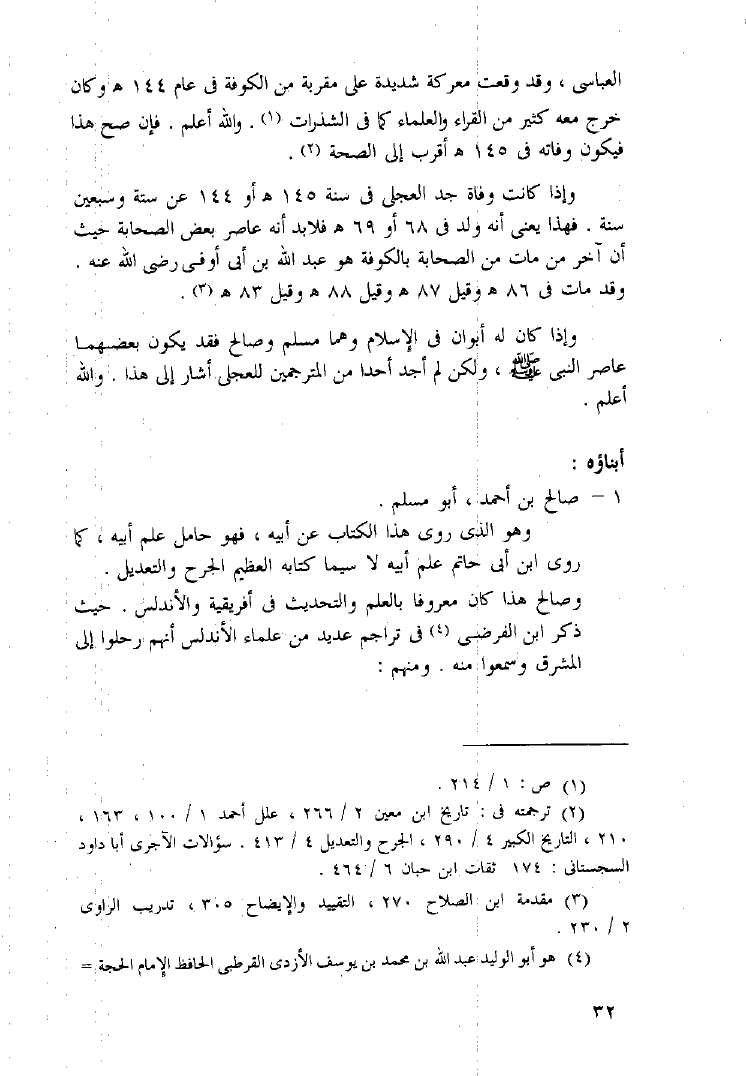 العباسى ، وقد وقعت معركة شديدة على مقربة من الكوفة فى عام ١٤٤ ه وكان
خرج معه كثير من القراء والعلماء كما فى الشذرات (١) . والله أعلم . فإن صح هذا
فيكون وفاته فى ١٤٥ ه أقرب إلى الصحة (٢) .
وإذا كانت وفاة جد العجلى فى سنة ١٤٥ ه أو ١٤٤ عن ستة وسبعين
سنة . فهذا يعنى أنه ولد فى ٦٨ أو ٦٩ ه فلابد أنه عاصر بعض الصحابة حيث
أن آخر من مات من الصحابة بالكوفة هو عبد الله بن أبى أوفى رضى الله عنه .
وقد مات فى ٨٦ ه وقيل ٨٧ ه وقيل ٨٨ ه وقيل ٨٣ ه (٣) .
وإذا كان له أبوان فى الإسلام وهما مسلم وصالح فقد يكون بعضهما
عاصر النبى ﷺ ، ولكن لم أجد أحدا من المترجمين للعجلى أشار إلى هذا . والله
أعلم .
أبناؤه :
١ – صالح بن أحمد ، أبو مسلم .
وهو الذى روى هذا الكتاب عن أبيه ، فهو حامل علم أبيه ، كما
روى ابن أبى حاتم علم أبيه لا سيما كتابه العظيم الجرح والتعديل .
وصالح هذا كان معروفا بالعلم والتحديث فى أفريقية والأندلس . حيث
ذكر ابن الفرضى (٤) فى تراجم عديد من علماء الأندلس أنهم رحلوا إلى
المشرق وسمعوا منه . ومنهم :
(١) ص : ١ / ٢١٤ .
(٢) ترجمته فى : تاريخ ابن معين ٢ / ٢٦٦ ، علل أحمد ١ / ١٠٠ ، ١٦٣ ،
٢١٠ ، التاريخ الكبير ٤ / ٢٩٠ ، الجرح والتعديل ٤ / ٤١٣ . سؤالات الآجرى أبا داود
السجستانى : ١٧٤ ثقات ابن حبان ٦ / ٤٦٤ .
(٣) مقدمة ابن الصلاح ٢٧٠ ، التقييد والإيضاح ٣٠٥ ، تدريب الراوى
٢ / ٢٣٠ .
(٤) هو أبو الوليد عبد الله بن محمد بن يوسف الأزدى القرطبى الحافظ الإمام الحجة =
٣٢